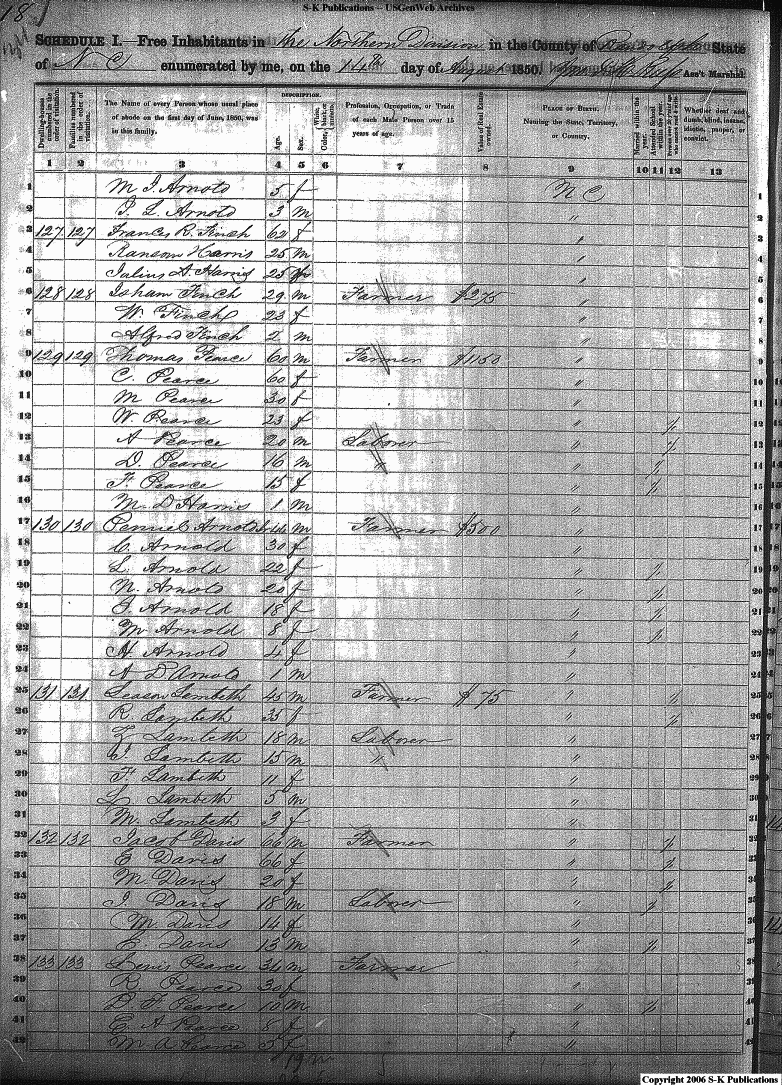 S-K Publications -- USGenWeb Archives
18
SCHEDULE I. Free Inhabitants in the Northern Division in the County of Randolph State
of N C enumerated by me, on the 14th day of August 1850. Ass't Marshal
DESCRIPTION.
Dwelling-houses numbered in the order of visitation.
Families numbered in the order of visitation.
The Name of every Person whose usual place of abode on the first day of June, 1850, was in this family.
Age.
Sex.
Color, White, black, or mulatto.
Profession, Occupation, or Trade of each Male Person over 15 years of age.
Value of Real Estate owned.
PLACE OF BIRTH. Naming the State, Territory, or Country.
Married within the year.
Attended School within the year.
Whether deaf and dumb, blind, insane, idiotic, pauper, or convict.
1 2 3 4 5 6 7 8 9 10 11 12 13
1 M. J. Arnold 5 f N C 1
2 J. L. Arnold 3 m " 2
3 127 127 Frances R. Finch 62 f " 3
4 Ransom Harris 25 m " 4
5 Harris 25 " 5
6 128 128 Isham Finch 29 m Farmer $275 " 6
7 W. Finch 23 f " 7
8 Alfred Finch 2 m " 8
9 129 129 Thomas Pearce 60 m Farmer $1150 " 9
10 C. Pearce 60 f " 10
11 M Pearce 30 f " 11
12 W. Pearce 23 f " / 12
13 A Pearce 20 m Laborer " / 13
14 D. Pearce 16 m " " / 14
15 F. Pearce 15 f " / 15
16 M. D Harris 1 m " 16
17 130 130 Arnold 44 m Farmer $500 " 17
18 C. Arnold 30 f " 18
19 L. Arnold 22 f " / 19
20 N. Arnold 20 f " / 20
21 J. Arnold 18 f " / 21
22 M Arnold 8 f " / 22
23 H Arnold 4 f " 23
24 A D Arnold 1 m " 24
25 131 131 Lambeth 45 m Farmer $ 75 " / 25
26 R. Lambeth 35 f " / 26
27 Z Lambeth 18 m Laborer " 27
28 Lambeth 15 m " " 28
29 F Lambeth 11 f " 29
30 L Lambeth 5 m " 30
31 M. Lambeth 3 f " 31
32 132 132 Jacob Davis 66 m Farmer " / 32
33 E Davis 66 f " / 33
34 M. Davis 20 f " / 34
35 J. Davis 18 m Laborer " / 35
36 M Davis 14 f " 36
37 E Davis 13 m " / 37
38 133 133 Lewis Pearce 34 m Farmer " 38
39 R. Pearce 30 f " 39
40 D F Pearce 10 m " / 40
41 E A Pearce 8 f " 41
42 M A Pearce 5 f " 42
19 m
Copyright 2006 S-K Publications